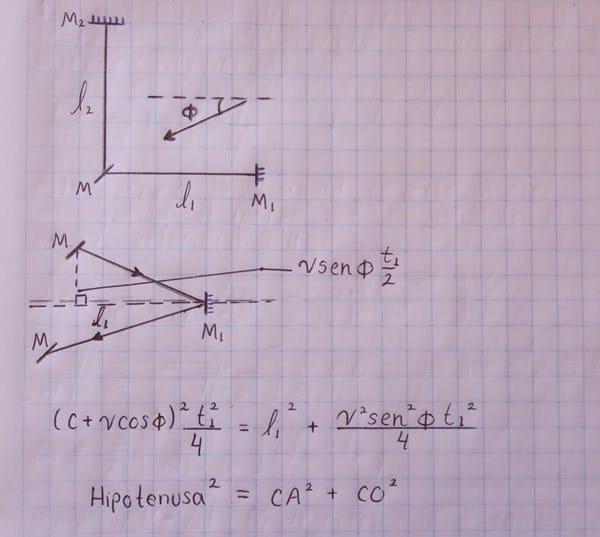 M₂
l₂
Φ
M
l₁
M₁
M
v sen Φ t₁/2
l₁
M₁
M
(C + v cos Φ)² t₁²/4 = l₁² + v² sen² Φ t₁²/4
Hipotenusa² = CA² + CO²